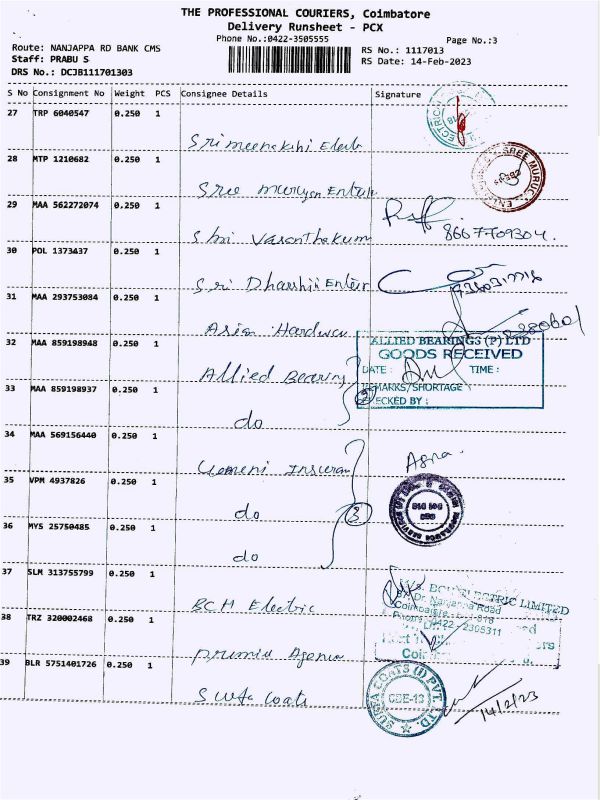 THE PROFESSIONAL COURIERS, Coimbatore
Delivery Runsheet - PCX
Phone No.:0422-3505555
Page No.:3
Route: NANJAPPA RD BANK CMS
RS No.: 1117013
Staff: PRABU S
RS Date: 14-Feb-2023
DRS No.: DCJB111701303
S No Consignment No Weight PCS Consignee Details Signature
27 TRP 6040547 0.250 1
28 MTP 1210682 0.250 1
Sree
29 MAA 562272074 0.250 1
8667709304.
30 POL 1373437 0.250 1
Sri
31 MAA 293753084 0.250 1
Asian
32 MAA 859198948 0.250 1
Allied Bearing
ALLIED BEARINGS (P) LTD
GOODS RECEIVED
DATE : TIME :
REMARKS/SHORTAGE
CHECKED BY :
2
33 MAA 859198937 0.250 1
do
34 MAA 569156440 0.250 1
35 VPM 4937826 0.250 1
do
3
36 MYS 25750485 0.250 1
do
37 SLM 313755799 0.250 1
BCH Electric
ELECTRIC LIMITED
Nanjappa Road
38 TRZ 320002468 0.250 1
39 BLR 5751401726 0.250 1
Surfa Coats
SURFA COATS (I) PVT. LTD.
CBE-18
14/2/23